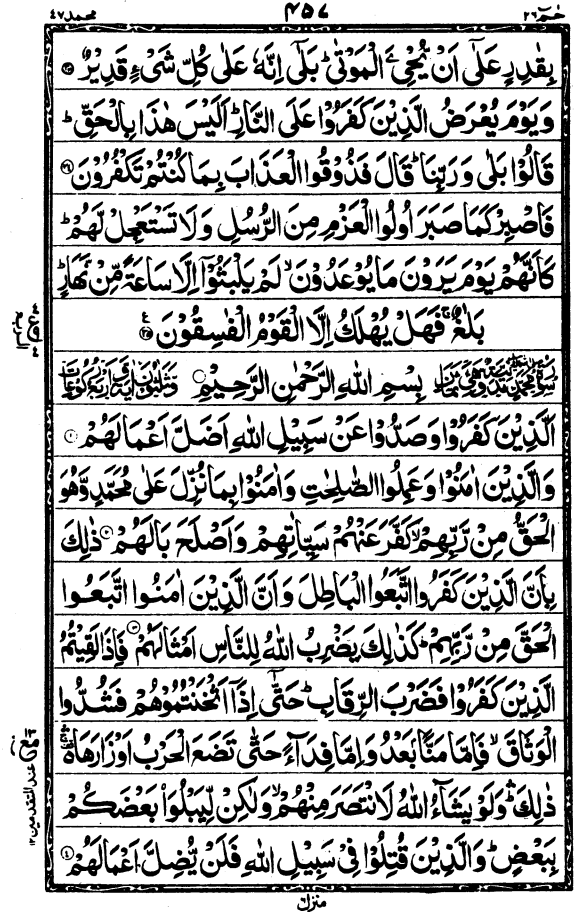 حٰمٓ ٢٦
٤٥٧
محمد ٤٧
بِقٰدِرٍ عَلٰٓى اَنْ يُّحْيِۦَ الْمَوْتٰى ؕ بَلٰٓى اِنَّهٗ عَلٰى كُلِّ شَىْءٍ قَدِيْرٌ
وَيَوْمَ يُعْرَضُ الَّذِيْنَ كَفَرُوْا عَلَى النَّارِ ؕ اَلَيْسَ هٰذَا بِالْحَقِّ ؕ
قَالُوْا بَلٰى وَرَبِّنَا ؕ قَالَ فَذُوْقُوا الْعَذَابَ بِمَا كُنْتُمْ تَكْفُرُوْنَ
فَاصْبِرْ كَمَا صَبَرَ اُولُوا الْعَزْمِ مِنَ الرُّسُلِ وَلَا تَسْتَعْجِلْ لَّهُمْ ؕ
كَاَنَّهُمْ يَوْمَ يَرَوْنَ مَا يُوْعَدُوْنَ ۙ لَمْ يَلْبَثُوْۤا اِلَّا سَاعَةً مِّنْ نَّهَارٍ ؕ
بَلٰغٌ ۚ فَهَلْ يُهْلَكُ اِلَّا الْقَوْمُ الْفٰسِقُوْنَ
بِسْمِ اللّٰهِ الرَّحْمٰنِ الرَّحِيْمِ
اَلَّذِيْنَ كَفَرُوْا وَصَدُّوْا عَنْ سَبِيْلِ اللّٰهِ اَضَلَّ اَعْمَالَهُمْ ١
وَالَّذِيْنَ اٰمَنُوْا وَعَمِلُوا الصّٰلِحٰتِ وَاٰمَنُوْا بِمَا نُزِّلَ عَلٰى مُحَمَّدٍ وَّهُوَ
الْحَقُّ مِنْ رَّبِّهِمْ ۙ كَفَّرَ عَنْهُمْ سَيِّاٰتِهِمْ وَاَصْلَحَ بَالَهُمْ ٢ ذٰلِكَ
بِاَنَّ الَّذِيْنَ كَفَرُوا اتَّبَعُوا الْبَاطِلَ وَاَنَّ الَّذِيْنَ اٰمَنُوا اتَّبَعُوا
الْحَقَّ مِنْ رَّبِّهِمْ ؕ كَذٰلِكَ يَضْرِبُ اللّٰهُ لِلنَّاسِ اَمْثَالَهُمْ ٣ فَاِذَا لَقِيْتُمُ
الَّذِيْنَ كَفَرُوْا فَضَرْبَ الرِّقَابِ ؕ حَتّٰٓى اِذَاۤ اَثْخَنْتُمُوْهُمْ فَشُدُّوا
الْوَثَاقَ ۙ فَاِمَّا مَنًّۢا بَعْدُ وَاِمَّا فِدَآءً حَتّٰى تَضَعَ الْحَرْبُ اَوْزَارَهَا
ذٰلِكَ ۛؕ وَلَوْ يَشَآءُ اللّٰهُ لَانْتَصَرَ مِنْهُمْ ۙ وَلٰكِنْ لِّيَبْلُوَا۟ بَعْضَكُمْ
بِبَعْضٍ ؕ وَالَّذِيْنَ قُتِلُوْا فِىْ سَبِيْلِ اللّٰهِ فَلَنْ يُّضِلَّ اَعْمَالَهُمْ ٤
منزل